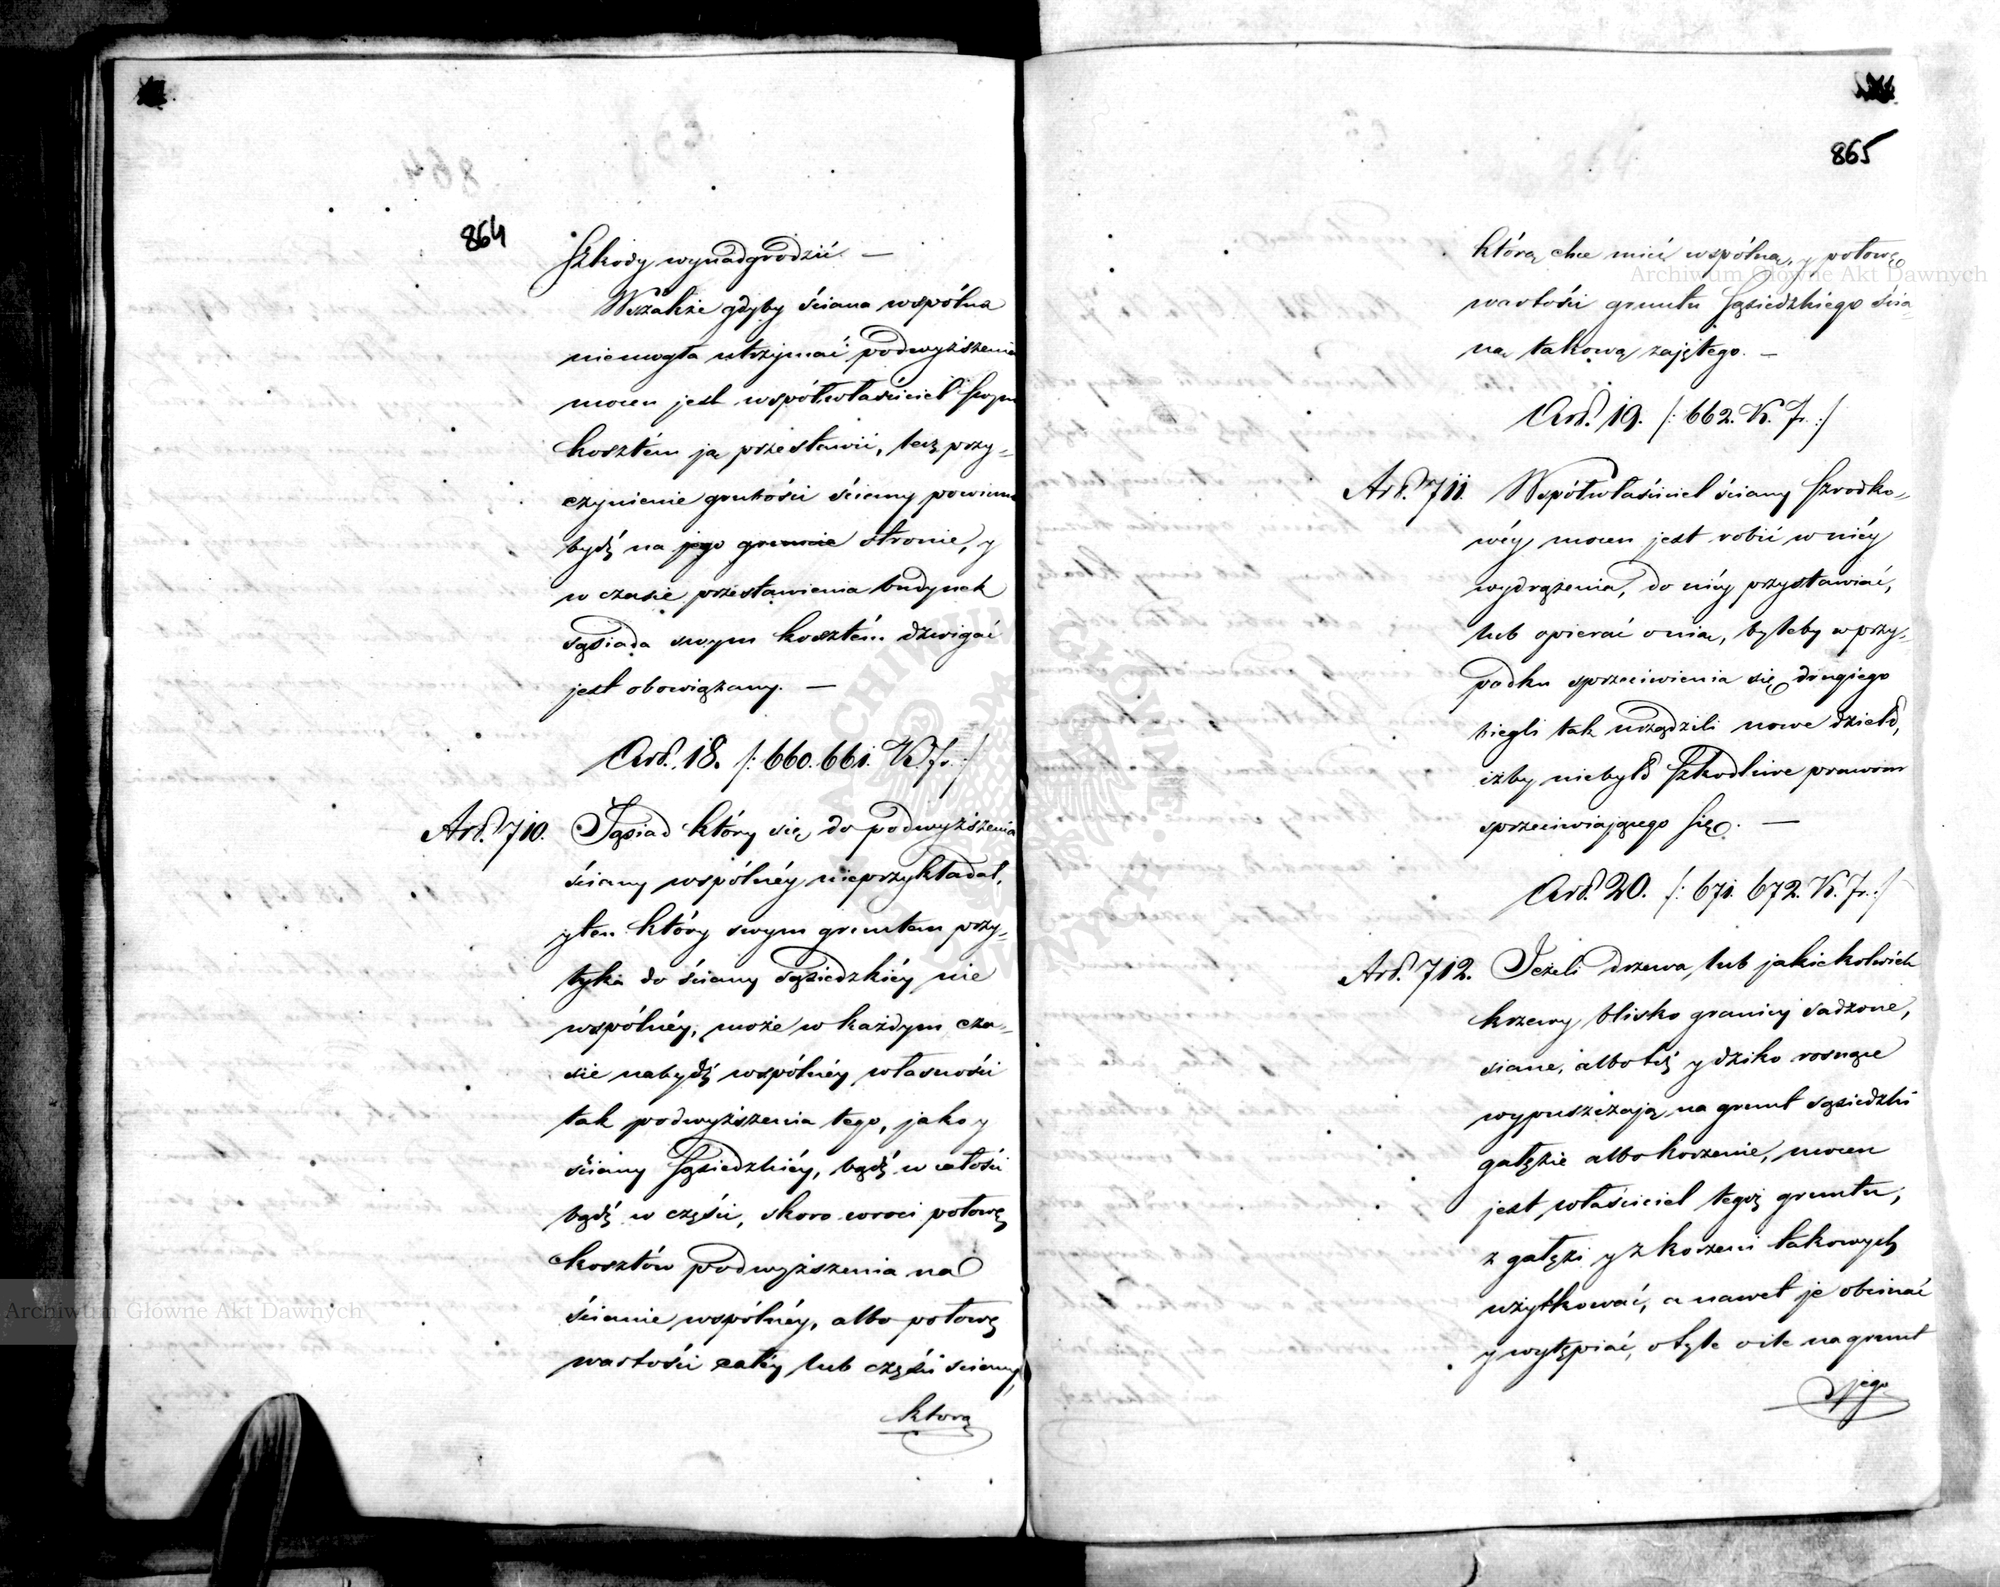 864
szkody wynadgrodzić. —
Wszakże gdyby ściana wspólna
niemogła utrzymać podwyższenia
mocen jest współwłaściciel swym
kosztém ją przestawić, lecz przy=
czynienie grubości ściany powinno
bydź na jego gruncie stronie, y
w czasie przestawienia budynek
sąsiada swym kosztém dźwigać
jest obowiązany. —
Art. 18. /: 660. 661. K. fr. :/
Art. 710. Sąsiad który się do podwyższenia
ściany wspólnéy nieprzykładał,
y ten który swym gruntem przy=
tyka do ściany sąsiedzkiéy nie
wspólnéy, może w każdym cza=
sie nabydź wspólnéy własności
tak podwyższenia tego, jako y
ściany sąsiedzkiéy, bądź w całości
bądź w części, skoro wroci połowę
kosztów podwyższenia na
ścianie wspólnéy, albo połowę
wartości całéy lub części sciany,
ktorą
865
którą chce mieć wspólną, y połowę
wartości gruntu sąsiedzkiego ścia
ną takową zajętego. —
Art. 19. /: 662. K. Fr. :/
Art. 711. Współwłaściciel ściany szrodko=
wéy mocen jest robić w niéy
wydrążenia, do niéy przystawiać,
lub opierać o nią, byleby w przy=
padku sprzeciwienia się drugiego
biegli tak urządzili nowe dzieło,
iżby niebyło szkodliwe prawom
sprzeciwiającego się. —
Art. 20. /: 671. 672. K. Fr. :/
Art. 712. Jeżeli drzewa, lub jakiekolwiek
krzewy blisko granicy sadzone,
siane, albo też y dziko rosnące
wypuszczają na grunt sąsiedzki
gałęzie albo korzenie, mocen
jest właściciel tegoż gruntu,
z gałęzi y z korzeni takowych
użytkować, a nawet je obcinać
y wytępiać, o tyle o ile na grunt
jego
Archiwum Główne Akt Dawnych
Archiwum Główne Akt Dawnych